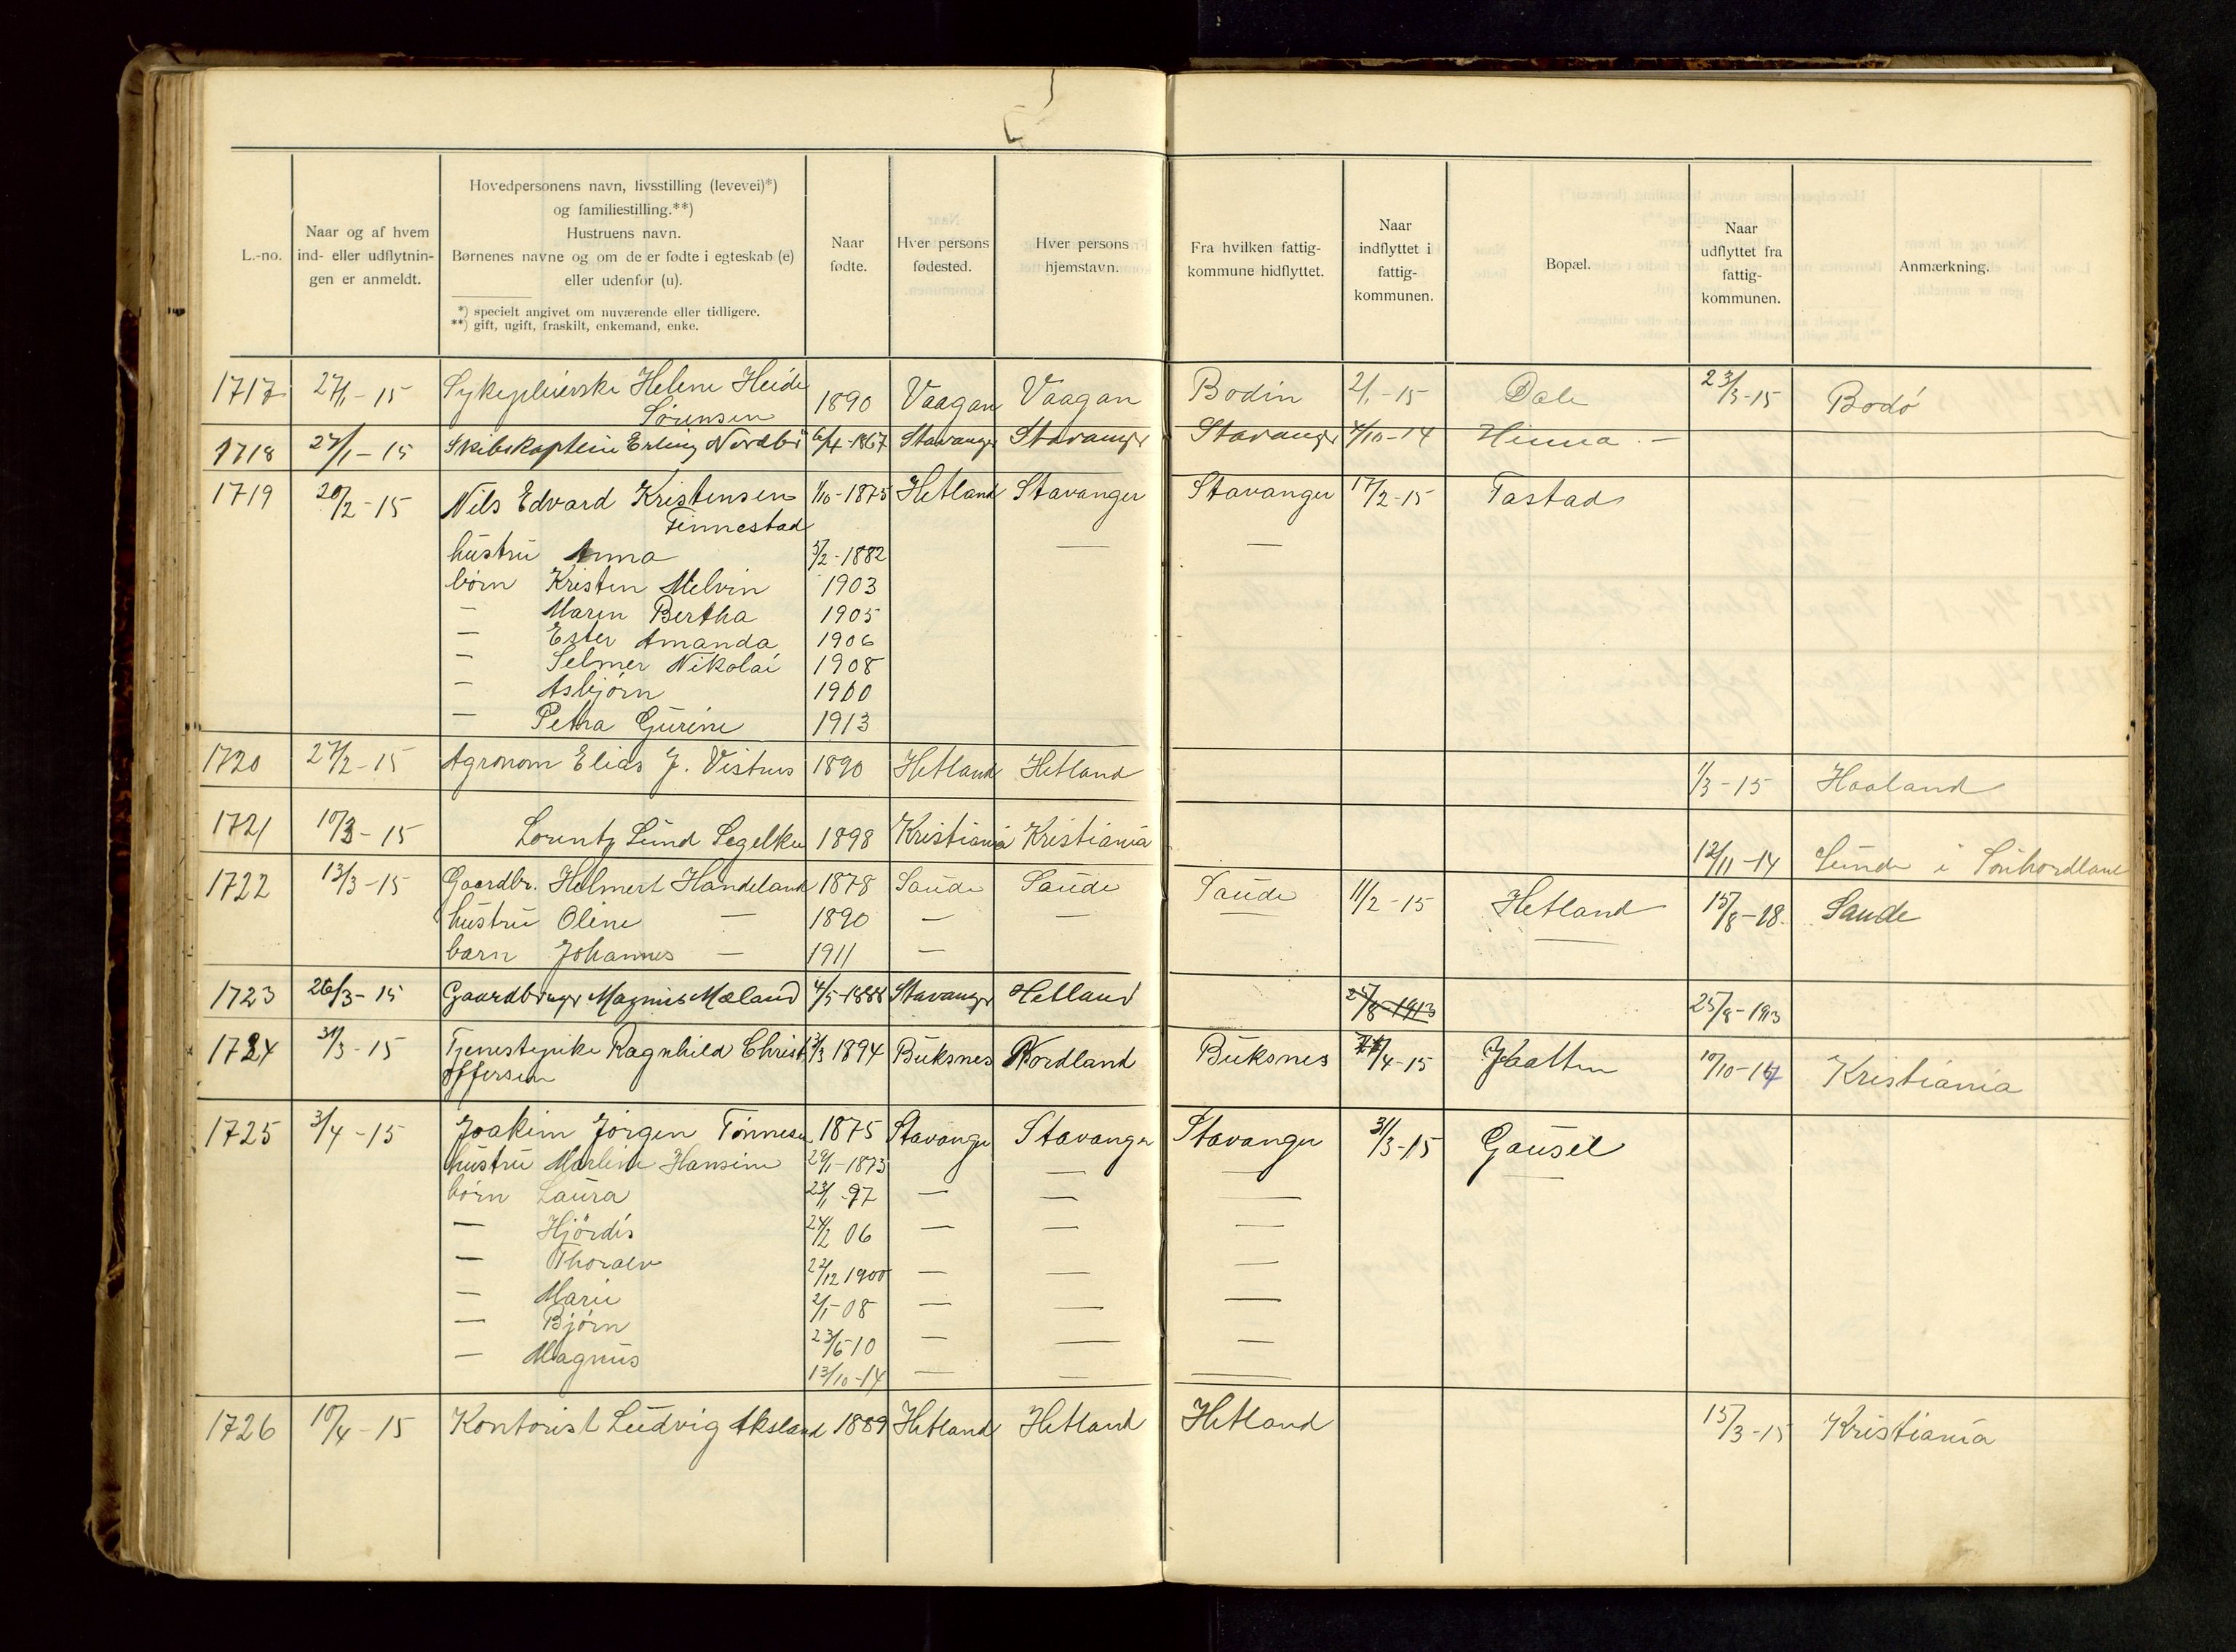 L.-no.
Naar og af hvem
ind- eller udflytnin-
gen er anmeldt.
Hovedpersonens navn, livsstilling (levevei)*)
og familiestilling.**)
Hustruens navn.
Børnenes navne og om de er fødte i egteskab (e)
eller udenfor (u).
*) specielt angivet om nuværende eller tidligere.
**) gift, ugift, fraskilt, enkemand, enke.
Naar
fødte.
Hver persons
fødested.
Hver persons
hjemstavn.
Fra hvilken fattig-
kommune hidflyttet.
Naar
indflyttet i
fattig-
kommunen.
Bopæl.
Naar
udflyttet fra
fattig-
kommunen.
Anmærkning.
1717 27/1-15 Sykepleierske Helene Heide 1890 Vaagan Vaagan Bodin 2/1-15 Dale 23/3-15 Bodö
Sørensen
1718 27/1-15 Skibskaptein Erling Nordbö 6/4-1867 Stavanger Stavanger Stavanger 4/10-14 Hinna -
1719 20/2-15 Nils Edvard Kristensen 1/10-1875 Hetland Stavanger Stavanger 17/2-15 Tastad
Finnestad
hustru Anna 5/2-1882 — —
børn Kristen Melvin 1903
— Maren Bertha 1905
— Ester Amanda 1906
— Selmer Nikolai 1908
— Asbjørn 1910
— Petra Gurine 1913
1720 27/2-15 Agronom Elias J. Vistnes 1890 Hetland Hetland 1/3-15 Haaland
1721 10/3-15 Lorentz Lund Segelke 1898 Kristiania Kristiania 12/11-14 Sunde i Sönhordland
1722 13/3-15 Gaardbr. Helmert Handeland 1878 Saude Saude Saude 11/2-15 Hetland 15/8-18. Saude
hustru Oline — 1890 — —
barn Johannes — 1911 —
1723 26/3-15 Gaardbruger Magnus Mæland 4/5-1888 Stavanger Hetland 25/8-1913 25/8-1913
1724 31/3-15 Tjenestepike Ragnhild Christ 2/3 1894 Buksnes Nordland Buksnes /4-15 Jaatten 10/10-17 Kristiania
offersen
1725 3/4-15 Joakim Jörgen Tönnesen 1875 Stavanger Stavanger Stavanger 31/3-15 Gausel
hustru Marline Hansine 29/1-1873 — —
börn Laura 23/1-97 — — —
— Hjördis 24/2 06 — — —
— Thoralv 22/12 1900 — — —
— Marie 2/1-08 — — —
— Bjørn 23/6-10 — — —
— Magnus 13/10-14 — — —
1726 10/4-15 Kontorist Ludvig Aksland 1889 Hetland Hetland Hetland 15/3-15 Kristiania